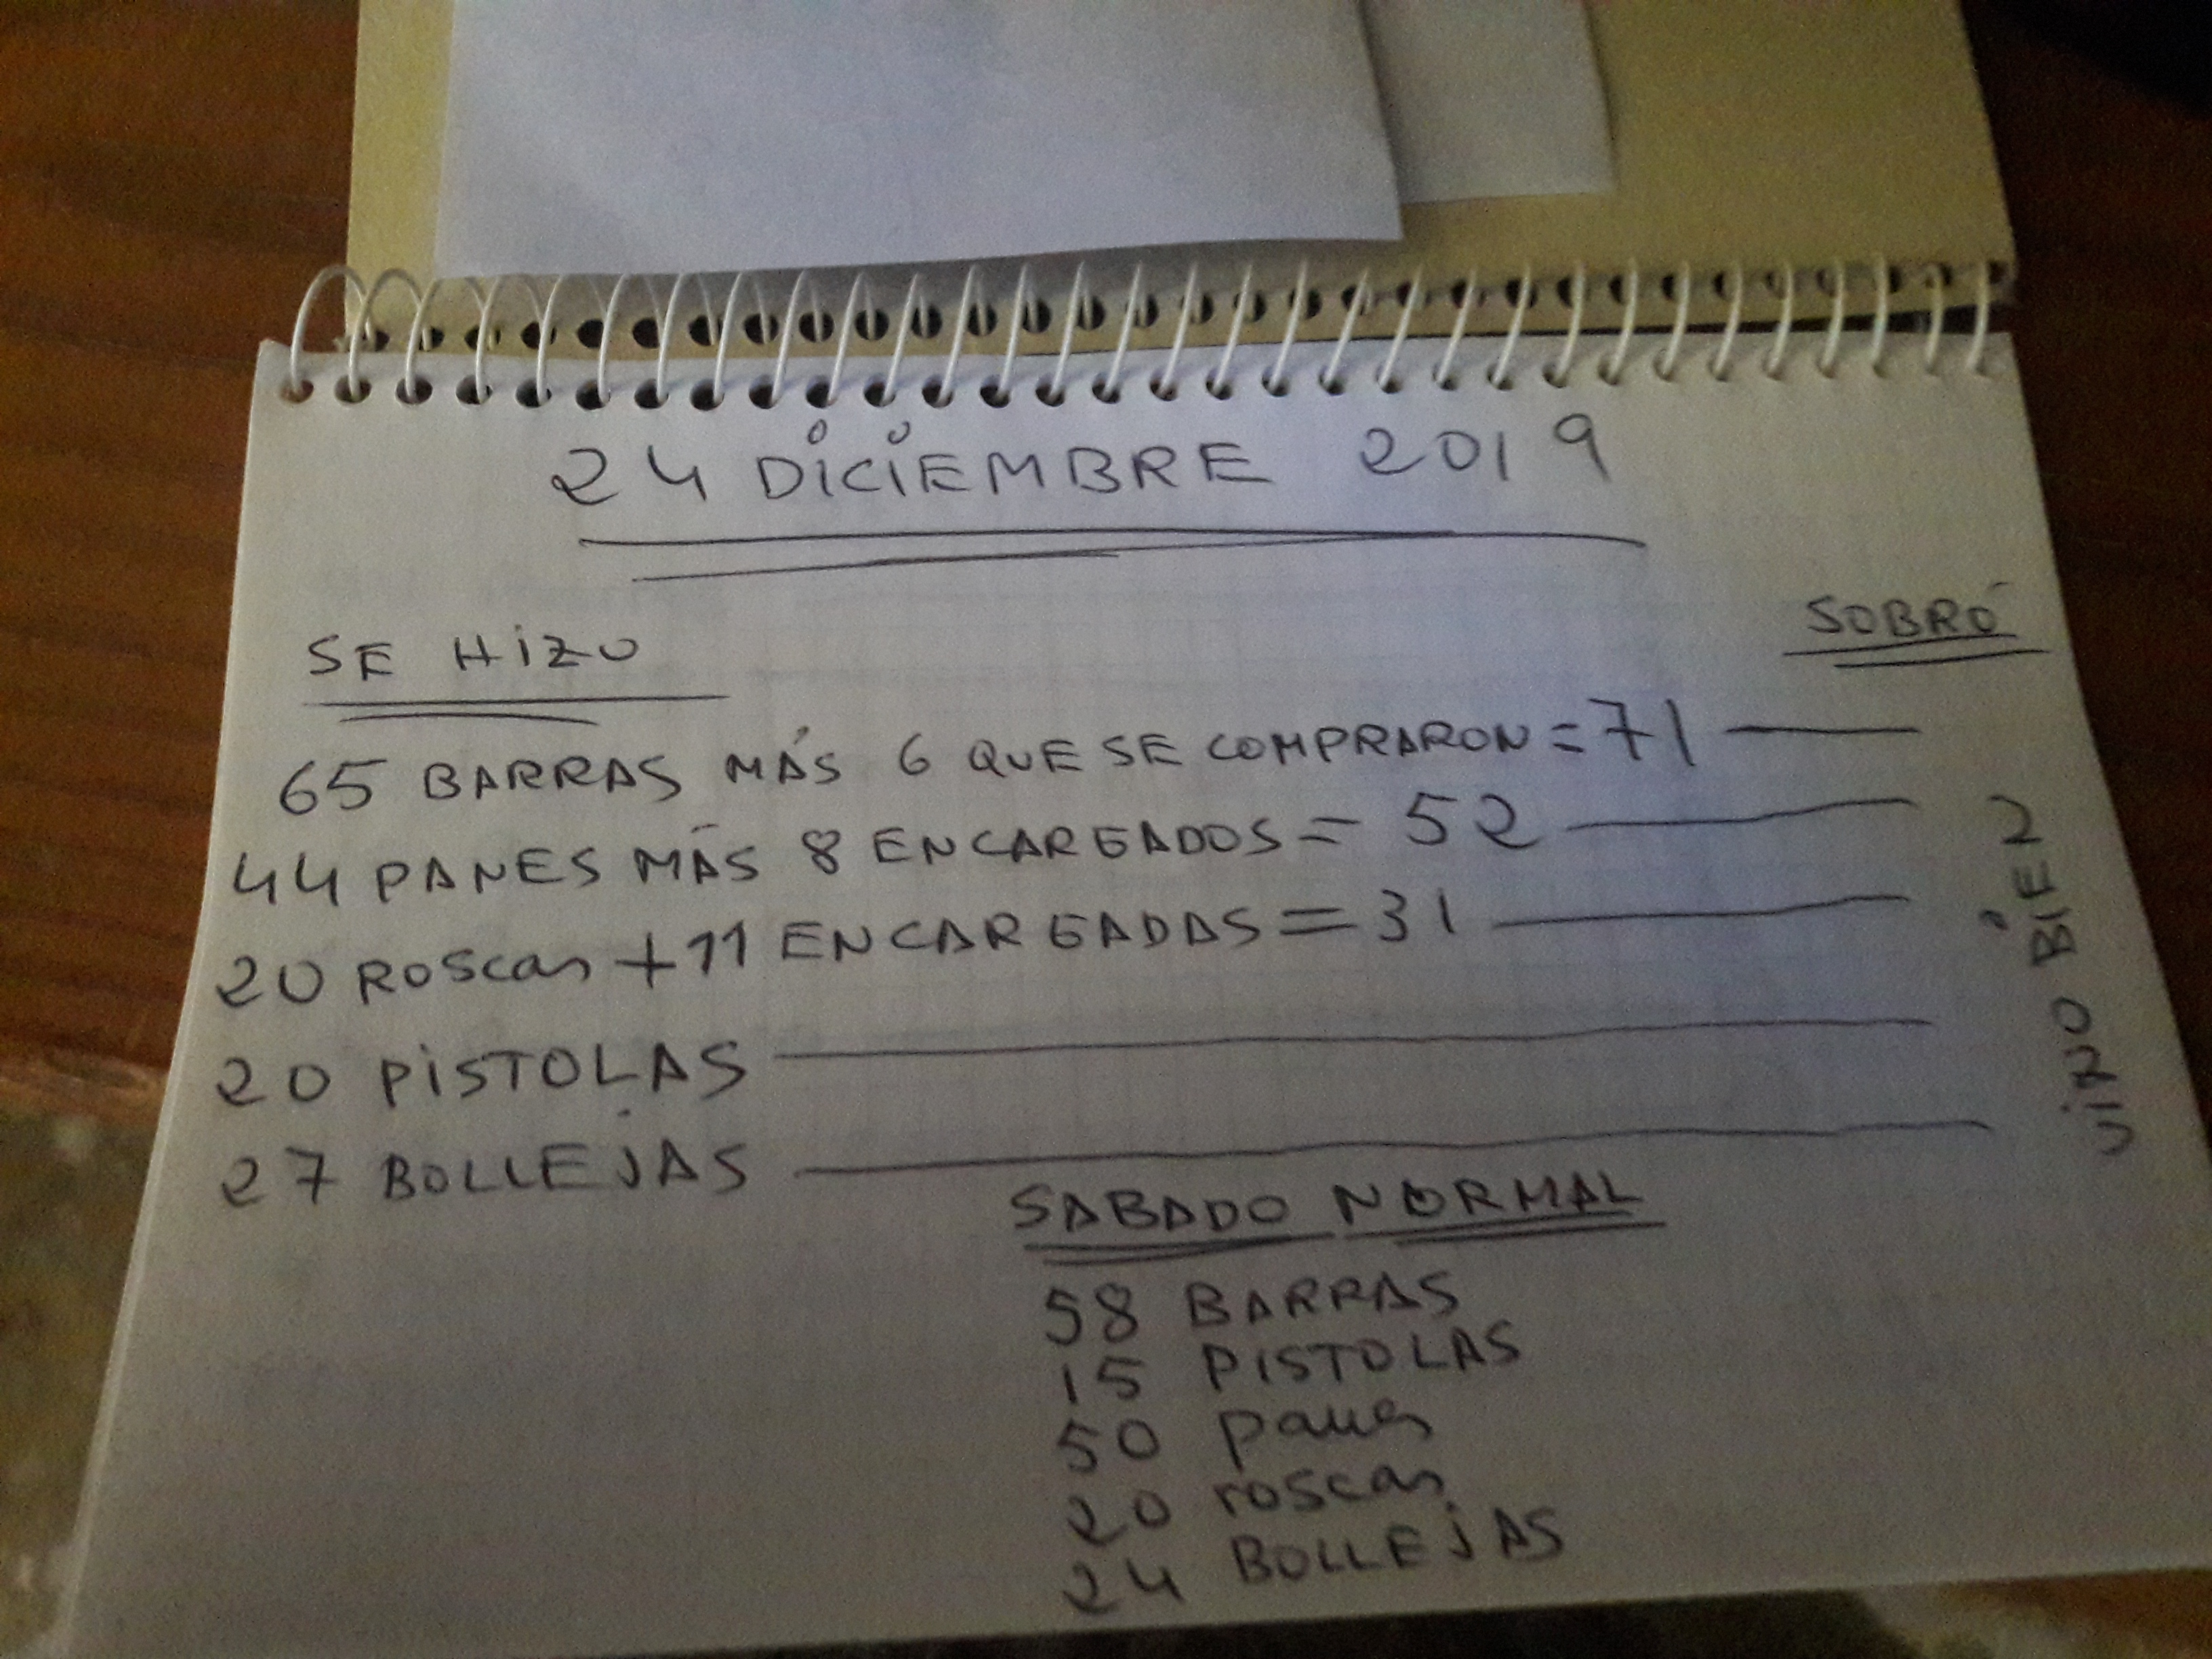 24 DICIEMBRE 2019
SE HIZO
SOBRÓ
65 BARRAS MÁS 6 QUE SE COMPRARON = 71
44 PANES MÁS 8 ENCARGADOS = 52
20 ROSCAS + 11 ENCARGADAS = 31
20 PISTOLAS
27 BOLLEJAS
VINO BIEN
SABADO NORMAL
58 BARRAS
15 PISTOLAS
50 panes
20 roscas
24 BOLLEJAS